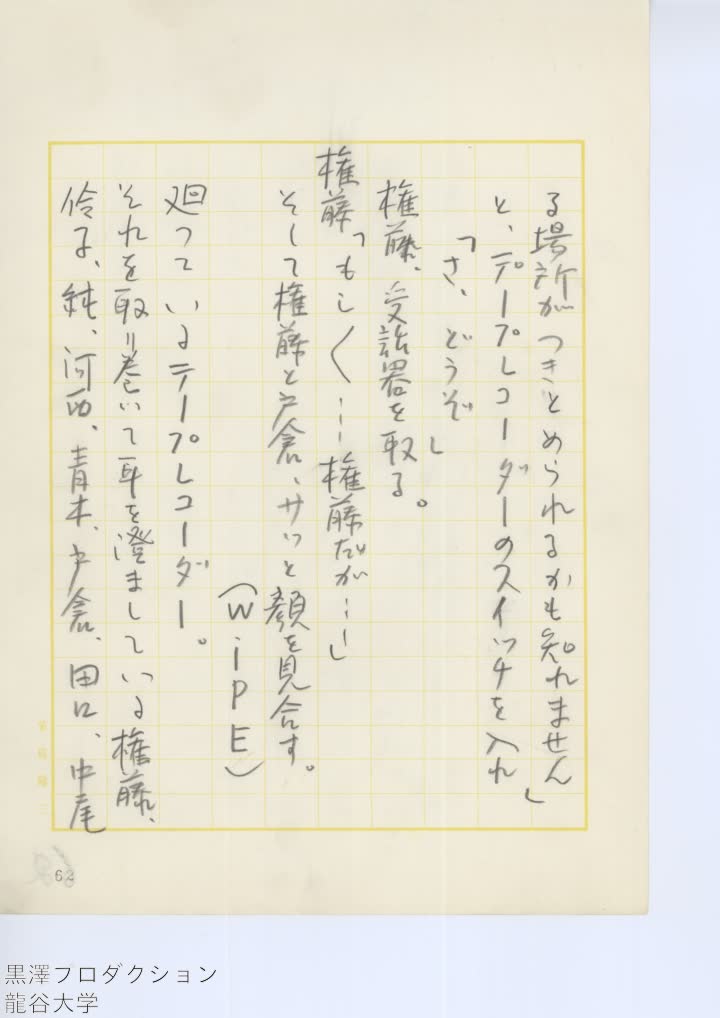 る場所がつきとめられるかも知れません」
と、テープレコーダーのスイッチを入れ
「さ、どうぞ」
権藤、受話器を取る。
権藤「もし〱…権藤だが……」
そして権藤と戸倉、サッと顔を見合す。
(WiPE)
廻っているテープレコーダー。
それを取り巻いて耳を澄ましている権藤、
伶子、純、河西、青木、戸倉、田口、中尾
62
黒澤プロダクション
龍谷大学